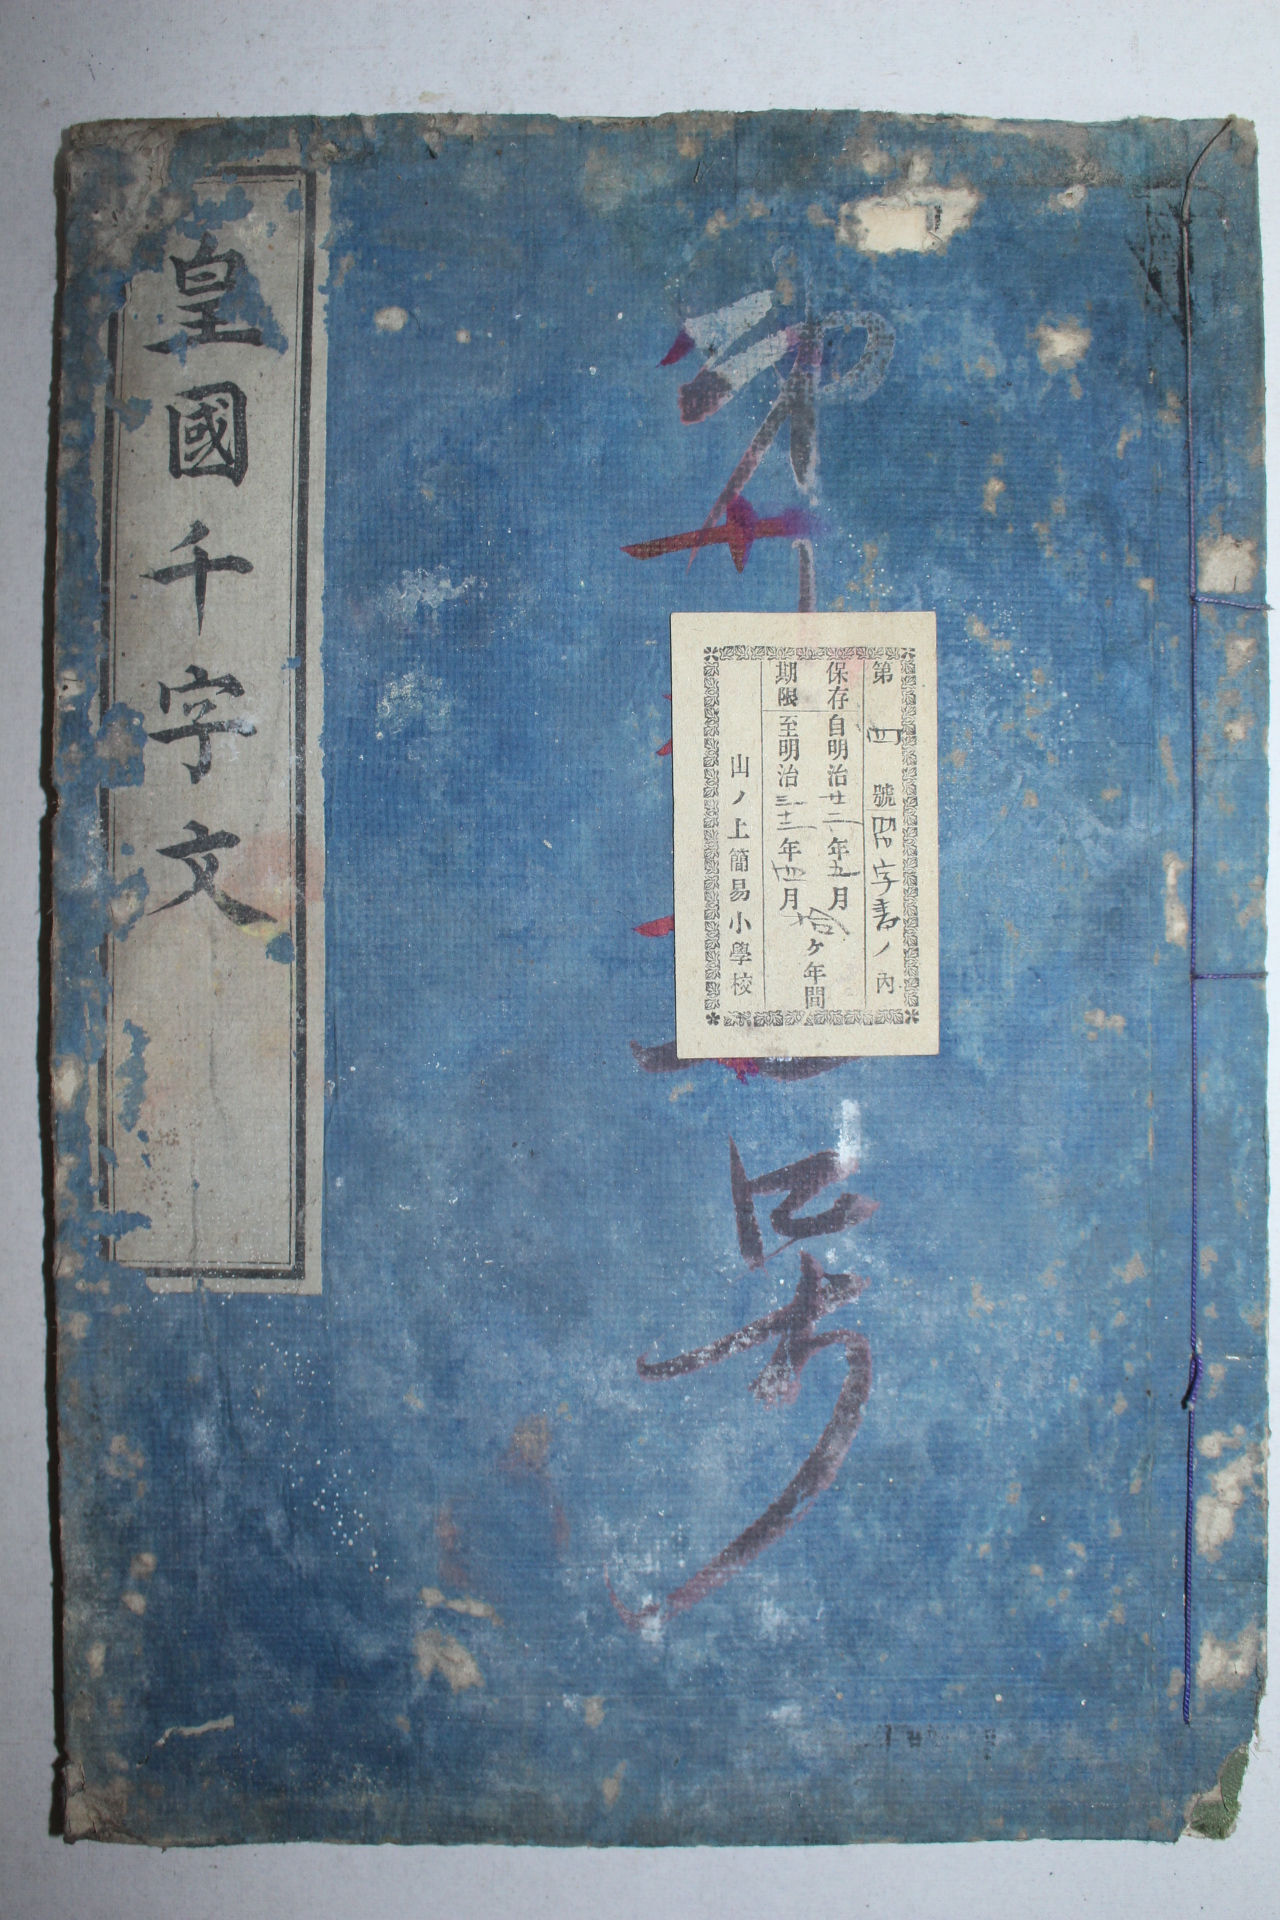 第四號
字書ノ內
保存期限
自明治廿二年五月
至明治三十二年四月
拾ケ年間
山ノ上簡易小學校
第十
号
皇國千字文